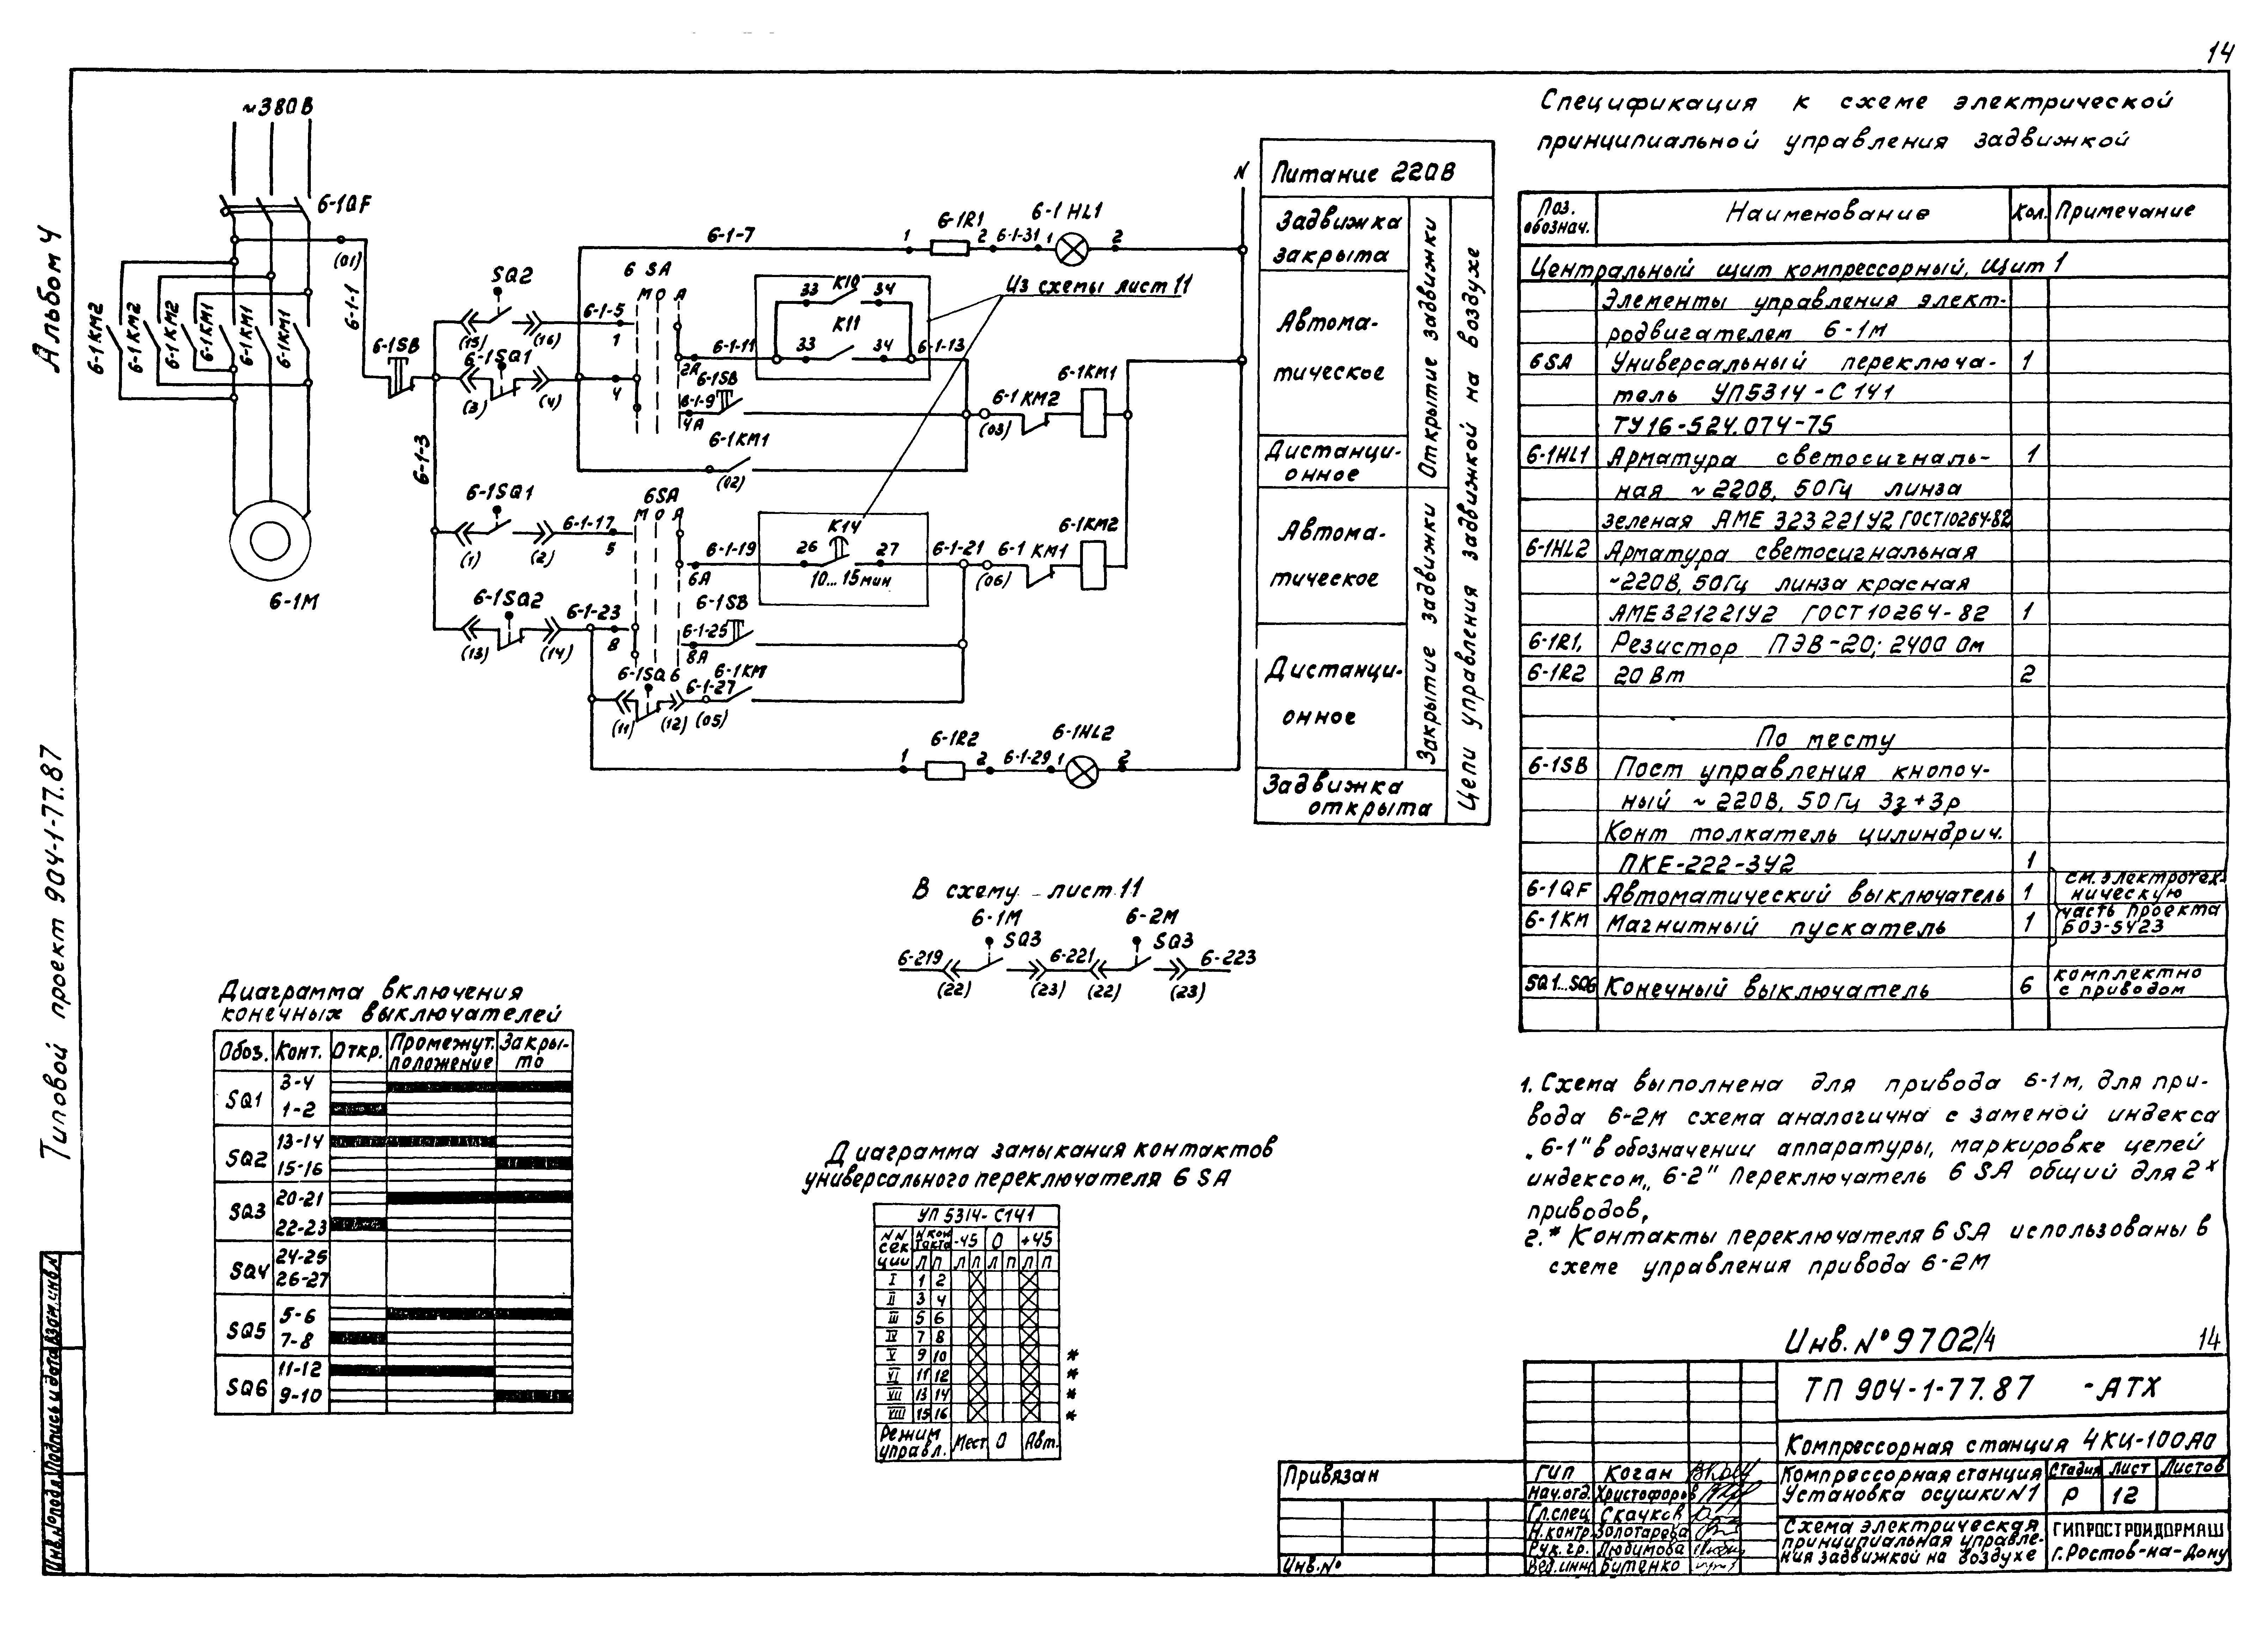 14
Альбом 4
Типовой проект 904-1-77.87
Инв.№подл. Подпись и дата Взам.инв.№
~380В
6-1QF
(01)
6-1-1
6-1KM2
6-1KM2
6-1KM2
6-1KM1
6-1KM1
6-1KM1
6-1M
6-1SB
6-1-3
SQ2
(15) (16)
6-1-5
1
6-1SQ1
(3) (4)
4
6-1-7
6 SA
М О А
6-1-11
2А
6-1SB
6-1-9
4А
6-1KM1
(02)
33 K10 34
K11
33 34
6-1-13
Из схемы лист 11
1 6-1R1 2 6-1-31 1 6-1HL1 2
N
6-1KM2
(03)
6-1KM1
6-1SQ1
(1) (2)
6-1-17
5
6SA
М О А
6-1-19
6А
K14
26 27
10...15мин
6-1-21
(06)
6-1 KM1
6-1KM2
6-1SQ2
(13) (14)
6-1-23
8
6-1SB
6-1-25
8А
6-1SQ6
(11) (12)
6-1-27
(05)
6-1KM
1 6-1R2 2 6-1-29 1 6-1HL2 2
Питание 220В
Задвижка
закрыта
Автома-
тическое
Дистанци-
онное
Автома-
тическое
Дистанци-
онное
Задвижка
открыта
Открытие задвижки
Закрытие задвижки
Цепи управления задвижкой на воздухе
В схему лист 11
6-1М 6-2М
SQ3 SQ3
6-219 6-221 6-223
(22) (23) (22) (23)
Диаграмма включения
конечных выключателей
Обоз. Конт. Откр. Промежут. положение Закры-то
SQ1 3-4
1-2
SQ2 13-14
15-16
SQ3 20-21
22-23
SQ4 24-25
26-27
SQ5 5-6
7-8
SQ6 11-12
9-10
Диаграмма замыкания контактов
универсального переключателя 6 SA
УП 5314-С141
NN секции N контакта -45 0 +45
Л П Л П Л П Л П
I 1 2
II 3 4
III 5 6
IV 7 8
V 9 10 *
VI 11 12 *
VII 13 14 *
VIII 15 16 *
Режим управл. Мест. 0 Авт.
Спецификация к схеме электрической
принципиальной управления задвижкой
Поз. обознач. Наименование Кол. Примечание
Центральный щит компрессорный, Щит 1
Элементы управления элект-
родвигателем 6-1м
6SA Универсальный переключа- 1
тель УП5314-С141
ТУ16-524.074-75
6-1HL1 Арматура светосигналь- 1
ная ~220В, 50Гц линза
зеленая АМЕ 323221У2 ГОСТ10264-82
6-1HL2 Арматура светосигнальная
~220В, 50Гц линза красная
АМЕ321221У2 ГОСТ 10264-82 1
6-1R1, Резистор ПЭВ-20; 2400 Ом
6-1R2 20 Вт 2
По месту
6-1SB Пост управления кнопоч-
ный ~220В, 50Гц 3з+3р
Конт толкатель цилиндрич.
ПКЕ-222-3У2 1
6-1QF Автоматический выключатель 1 см. электротех-
ническую
6-1КМ Магнитный пускатель 1 часть проекта
БОЭ-5423
SQ1...SQ6 Конечный выключатель 6 комплектно
с приводом
1. Схема выполнена для привода 6-1м, для при-
вода 6-2М схема аналогична с заменой индекса
„6-1" в обозначении аппаратуры, маркировке цепей
индексом „6-2" Переключатель 6 SA общий для 2х
приводов,
2.* Контакты переключателя 6 SA использованы в
схеме управления привода 6-2М
Инв. № 9702/4 14
ТП 904-1-77.87 -АТХ
Компрессорная станция 4КЦ-100А0
Компрессорная станция
Установка осушки N1
Стадия Лист Листов
Р 12
Схема электрическая
принципиальная управле-
ния задвижкой на воздухе
ГИПРОСТРОЙДОРМАШ
г.Ростов-на-Дону
ГИП Коган
Нач.отд. Христофоров
Гл.спец Скачков
Н.контр Золотарева
Рук.гр. Любимова
Вед.инж. Битенко
Привязан
Инв.№